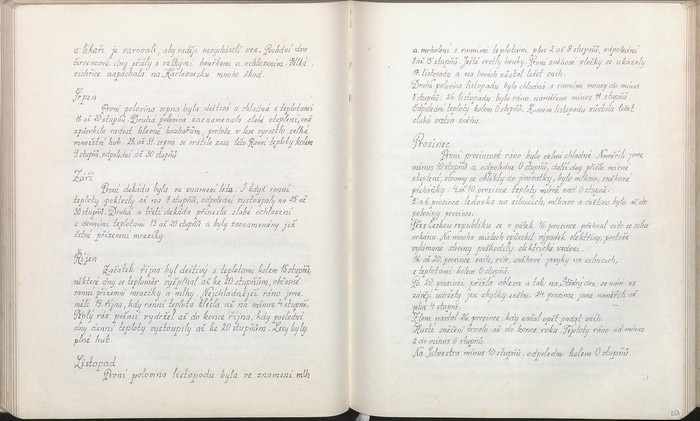 a lékaři je varovali, aby raději nevycházeli ven. Poslední dva
červencové dny přišly s velkými bouřkami a ochlazením. Velká
vichřice napáchala na Karlovarsku mnoho škod.
Srpen
První polovina srpna byla deštivá a chladná s teplotami
18 až 20 stupňů. Druhá polovina zaznamenala slabé oteplení, což
způsobilo radost hlavně houbařům, protože v lese vyrostlo velké
množství hub. 28. až 31. srpna se vrátilo zase léto. Ranní teploty kolem
9 stupňů, odpolední až 30 stupňů.
Září
První dekáda byla ve znamení léta. I když ranní
teploty poklesly až na 7 stupňů, odpoledne vystoupaly na 25 až
30 stupňů. Druhá a třetí dekáda přinesla slabé ochlazení
s denními teplotami 13 až 20 stupňů a byly zaznamenány již
četné přízemní mrazíky.
Říjen
Začátek října byl deštivý s teplotami kolem 15 stupňů,
některé dny se teploměr vyšplhal až ke 20 stupňům, občasné
ranní přízemní mrazíky a mlhy. Nejchladnější ráno jsme
měli 13. října, kdy ranní teplota klesla až na minus 4 stupně.
Teplý ráz počasí vydržel až do konce října, kdy poslední
dny denní teploty vystoupily až ke 20 stupňům. Lesy byly
plné hub.
Listopad
První polovina listopadu byla ve znamení mlh
a mrholení s ranními teplotami plus 2 až 8 stupňů, odpolední
8 až 13 stupňů. Ještě rostly houby. První sněhové vločky se ukázaly
17. listopadu a na horách zůstal ležet sníh.
Druhá polovina listopadu byla chladná s ranními mrazy do minus
5 stupňů. 26. listopadu bylo ráno naměřeno minus 11 stupňů.
Odpolední teploty kolem 0 stupňů. Koncem listopadu zůstala ležet
slabá vrstva sněhu.
Prosinec
První prosincové ráno bylo velmi chladné. Naměřili jsme
minus 10 stupňů a odpoledne 0 stupňů, další dny přišlo mírné
oteplení, stromy se oblékly do jinovatky, bylo mlhavo, sněhové
přeháňky. Až 10. prosince teploty mírně nad 0 stupňů.
5. a 6. prosince ledovka na silnicích, mlhavo a deštivo bylo až do
poloviny prosince.
Přes Českou republiku se v pátek 16. prosince přehnal vítr se silou
orkánu. Na mnoha místech způsobil výpadek elektřiny, protože
vyvrácené stromy poškodily elektrické vedení.
16. až 20. prosince sníh, vítr, sněhové jazyky na silnicích,
s teplotami kolem 0 stupňů.
Po 20. prosinci přišla obleva a tak na Štědrý den se nám ve
zdejší udržely jen zbytky sněhu. 24. prosince jsme naměřili až
plus 4 stupně.
Zlom nastal 26. prosince, kdy začal opět padat sníh.
Husté sněžení trvalo až do konce roku. Teploty ráno od minus
2 do minus 6 stupňů.
Na Silvestra minus 10 stupňů, odpoledne kolem 0 stupňů.
253